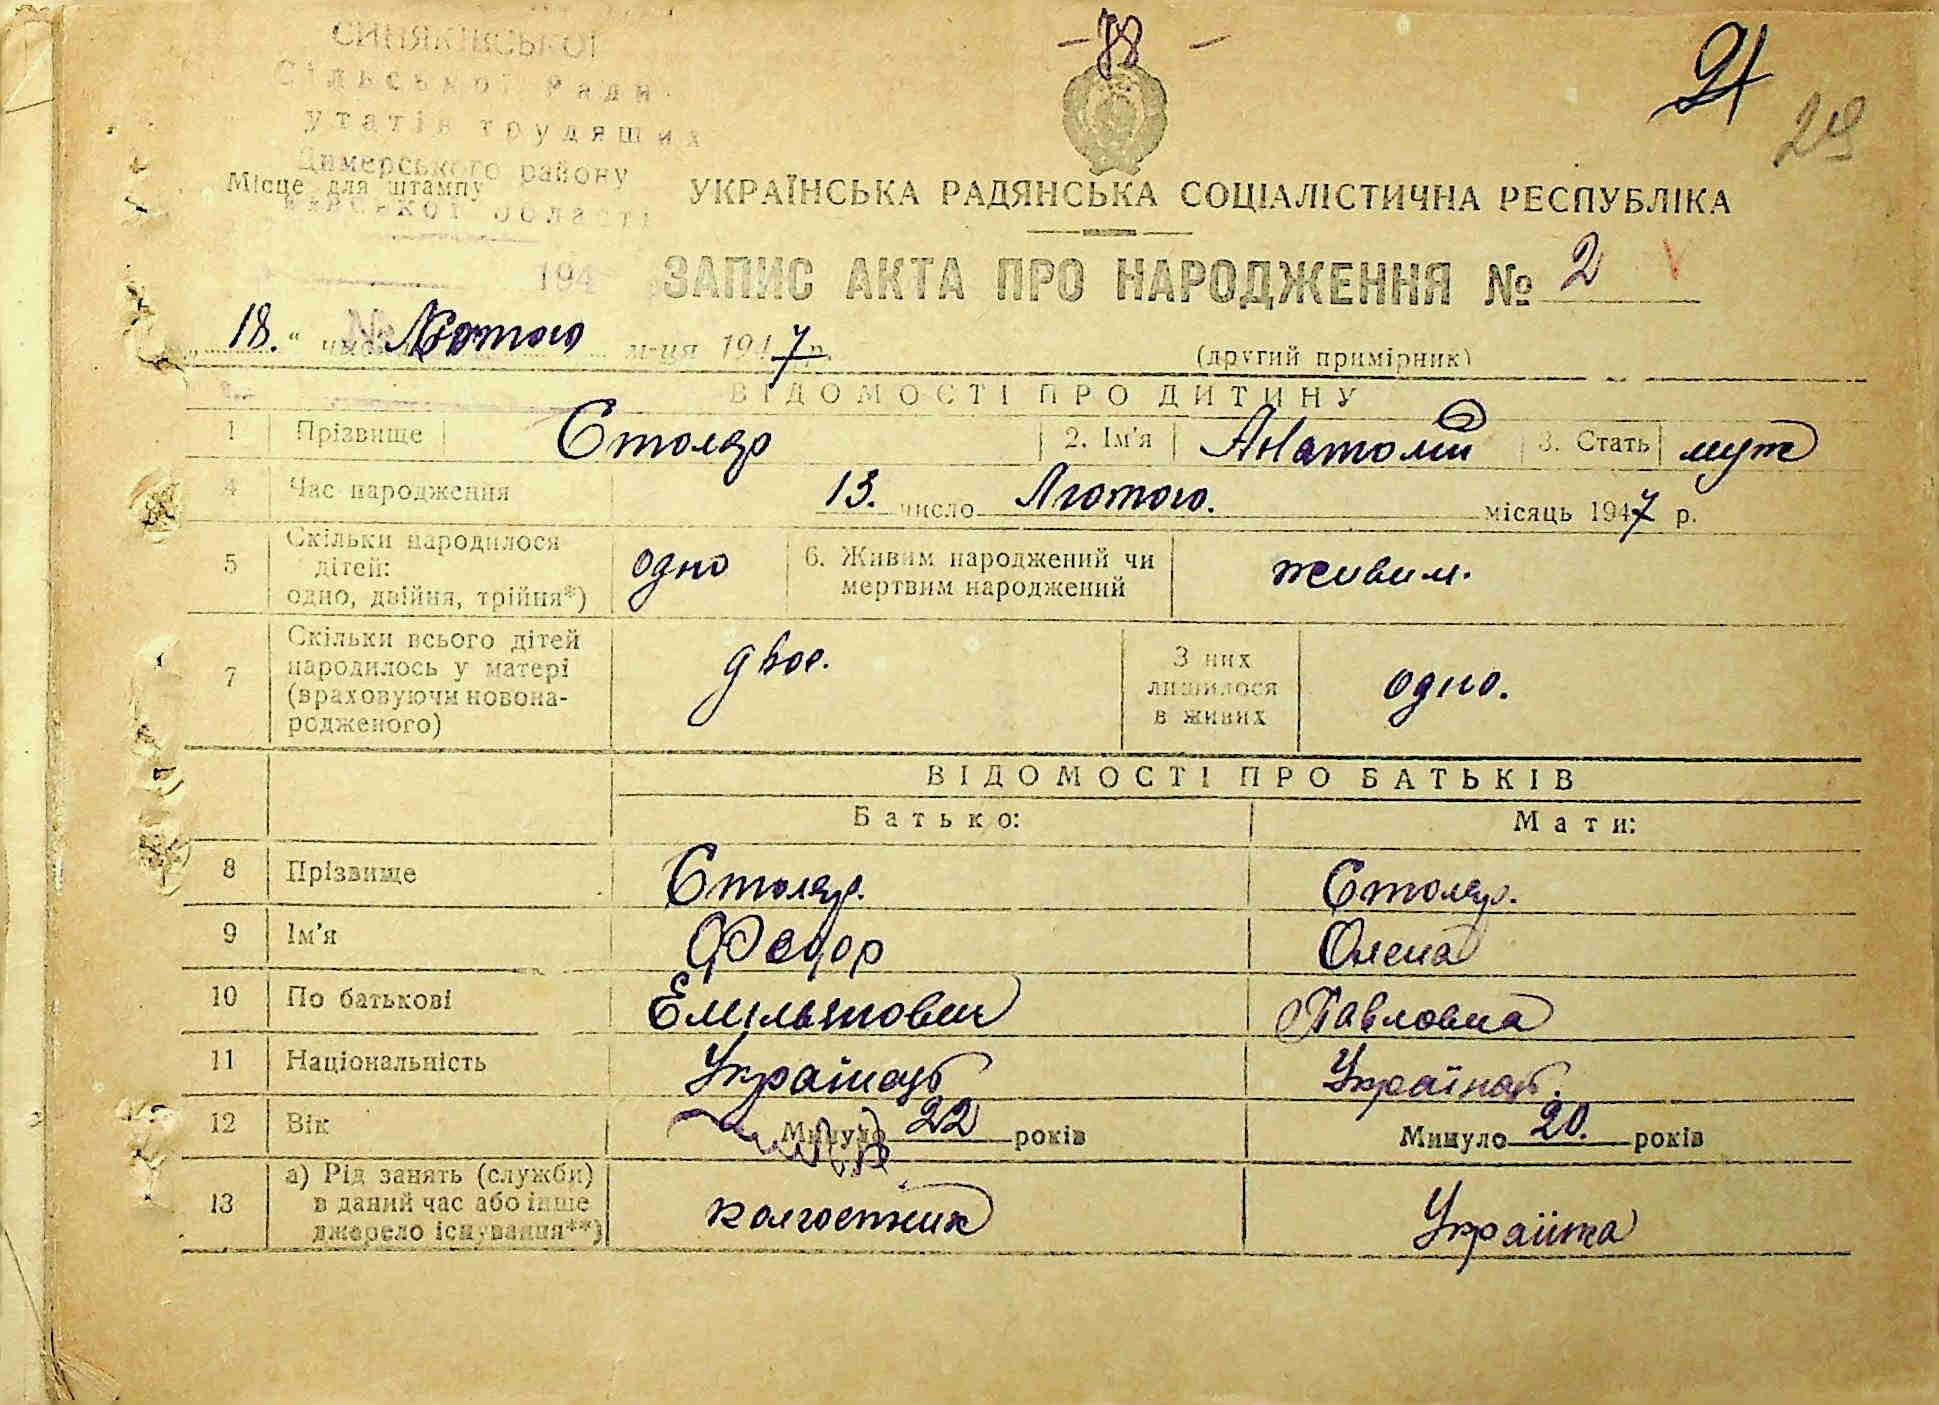 СИНЯКІВСЬКОЇ
Сільської Ради
утатів трудящих
Димерського району
Місце для штампу
Київської області
- 78 -
21
29
УКРАЇНСЬКА РАДЯНСЬКА СОЦІАЛІСТИЧНА РЕСПУБЛІКА
194
ЗАПИС АКТА ПРО НАРОДЖЕННЯ № 2
№
„18." числа Лютого м-ця 1947 р.
(другий примірник)
ВІДОМОСТІ ПРО ДИТИНУ
1 Прізвище Столяр 2. Ім'я Анатолій 3. Стать муж
4 Час народження 13. число Лютого. місяць 1947 р.
5 Скільки народилося дітей: одно, двійня, трійня*) одно 6. Живим народжений чи мертвим народжений живим.
7 Скільки всього дітей народилось у матері (враховуючи новонародженого) двое. З них лишилося в живих одно.
ВІДОМОСТІ ПРО БАТЬКІВ
Батько: Мати:
8 Прізвище Столяр. Столяр.
9 Ім'я Федор Олена
10 По батькові Емільянович Павловна
11 Національність Українець Українка.
12 Вік Минуло 22 років Минуло 20. років
13 а) Рід занять (служби) в даний час або інше джерело існування**) колгоспник Українка